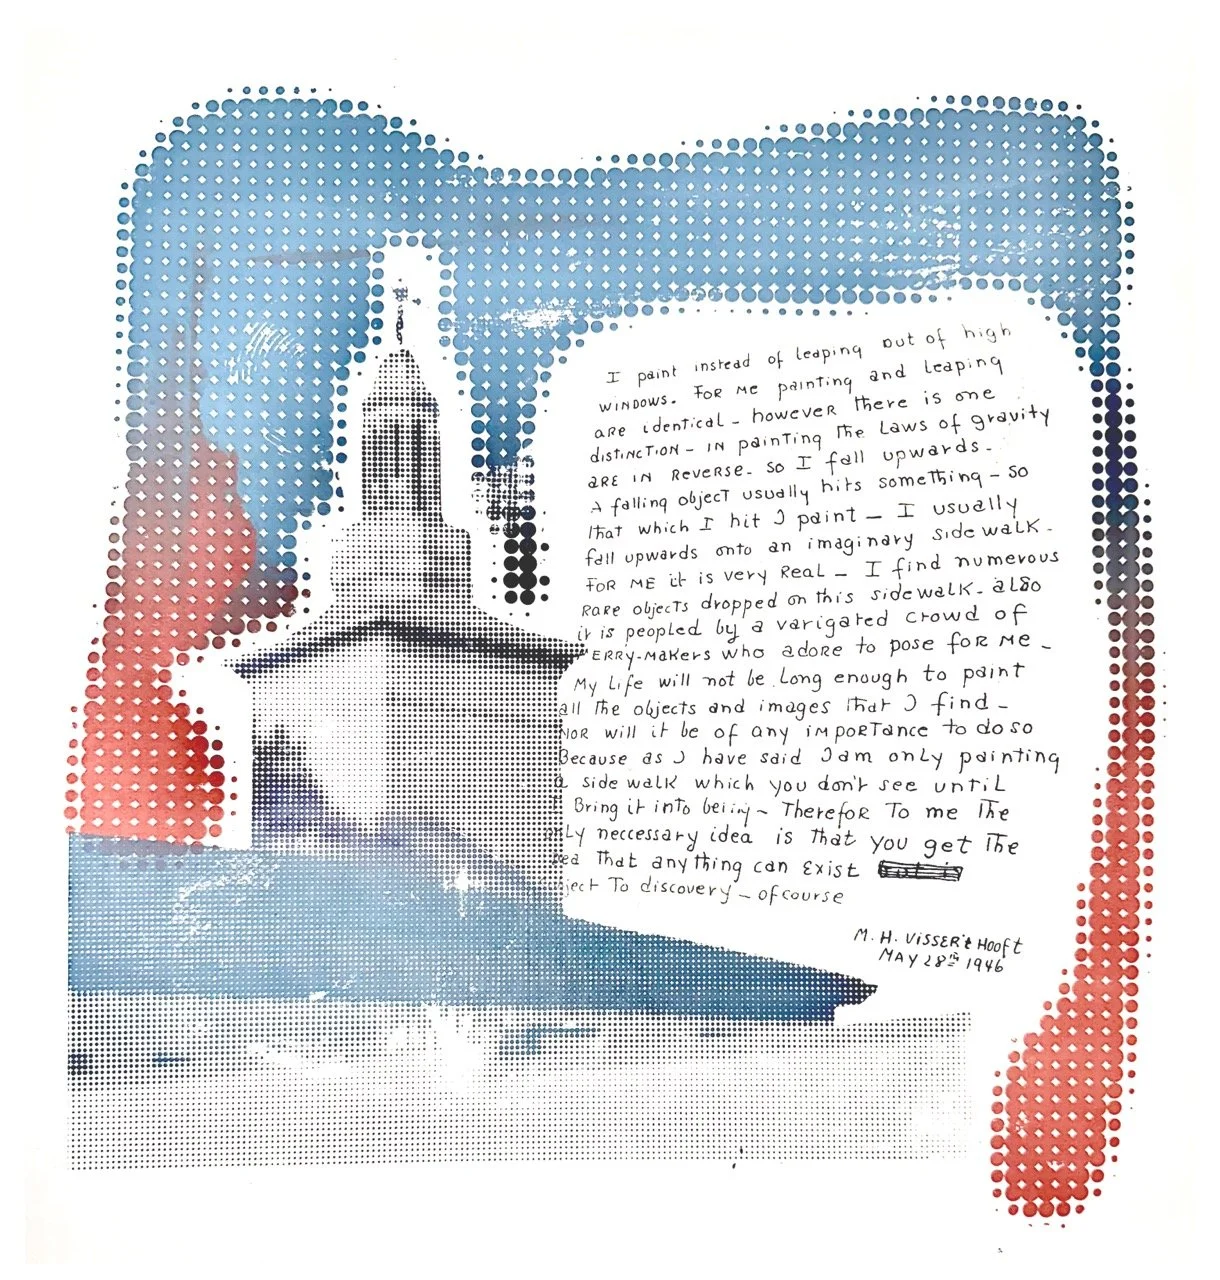 I paint instead of leaping out of high
WINDOWS. FOR ME painting and leaping
are identical - however there is one
distinction - IN painting the Laws of gravity
ARE IN REVERSE. SO I fall upwards -
A falling object usually hits something - so
that which I hit I paint - I usually
fall upwards onto an imaginary side walk -
FOR ME it is very Real - I find numerous
Rare objects dropped on this sidewalk - also
it is peopled by a varigated crowd of
ERRY-MAKERS who adore to pose for me -
My Life will not be Long enough to paint
all The objects and images that I find -
NOR will it be of any importance to do so
Because as I have said I am only painting
a side walk which you don't see until
Bring it into being - Therefor To me The
nly neccessary idea is that you get The
ea That any thing can Exist
ject To discovery - of course
M. H. VISSER't HOOFT
MAY 28th 1946